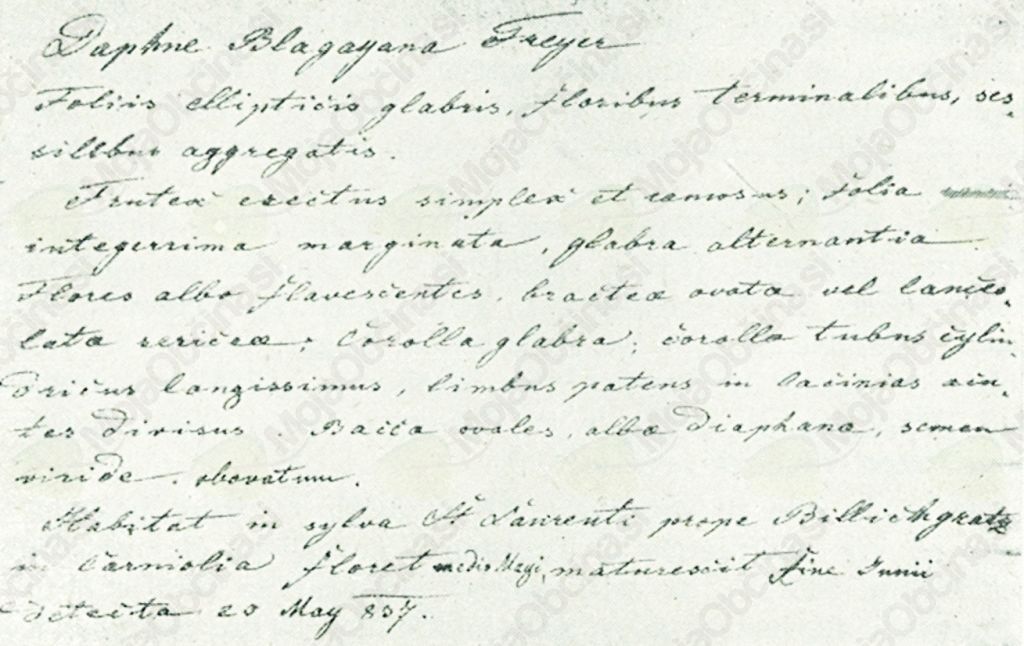 Daphne Blagayana Freyer
Foliis ellipticis glabris, floribus terminalibus, ses-
silibus aggregatis.
Frutex erectus simplex et ramosus; folia
integerrima marginata, glabra alternantia
Flores albo flavescentes, bractea ovata vel lanceo-
lata sericea; Corolla glabra; corolla tubus cylin-
dricus longissimus, limbus patens in lacinias acu-
tes divisus. Bacca ovales, alba diaphana, semen
viride obovatum.
Habitat in sylva St Laurenti prope Billichgratz
in Carniolia floret medio Mayi, maturescit fine Junii
detecta May 837.